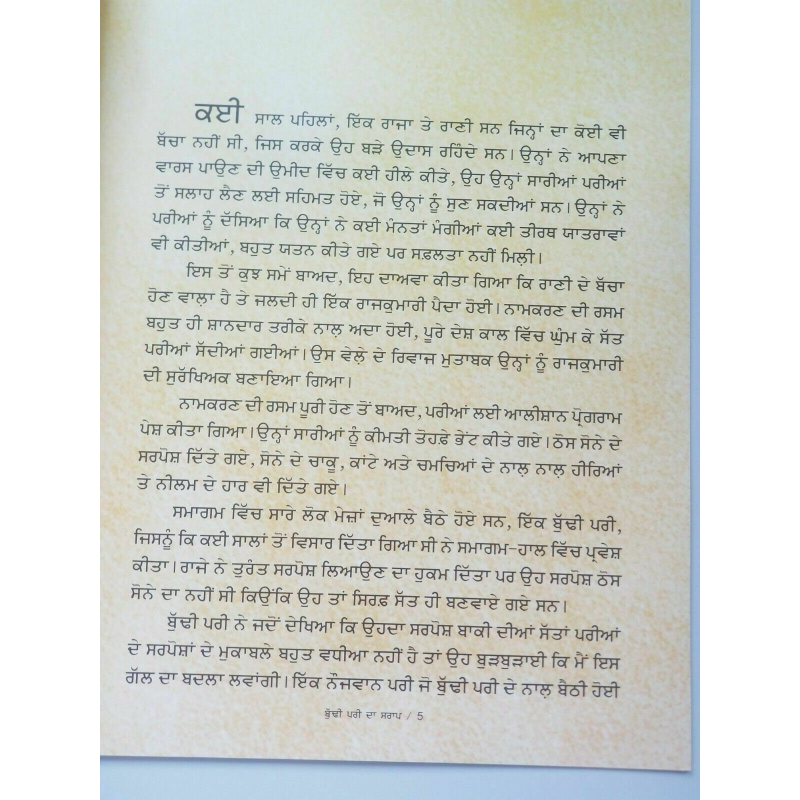 ਕਈ ਸਾਲ ਪਹਿਲਾਂ, ਇੱਕ ਰਾਜਾ ਤੇ ਰਾਣੀ ਸਨ ਜਿਨ੍ਹਾਂ ਦਾ ਕੋਈ ਵੀ
ਬੱਚਾ ਨਹੀਂ ਸੀ, ਜਿਸ ਕਰਕੇ ਉਹ ਬੜੇ ਉਦਾਸ ਰਹਿੰਦੇ ਸਨ। ਉਨ੍ਹਾਂ ਨੇ ਆਪਣਾ
ਵਾਰਸ ਪਾਉਣ ਦੀ ਉਮੀਦ ਵਿੱਚ ਕਈ ਹੀਲੇ ਕੀਤੇ, ਉਹ ਉਨ੍ਹਾਂ ਸਾਰੀਆਂ ਪਰੀਆਂ
ਤੋਂ ਸਲਾਹ ਲੈਣ ਲਈ ਸਹਿਮਤ ਹੋਏ, ਜੋ ਉਨ੍ਹਾਂ ਨੂੰ ਸੁਣ ਸਕਦੀਆਂ ਸਨ। ਉਨ੍ਹਾਂ ਨੇ
ਪਰੀਆਂ ਨੂੰ ਦੱਸਿਆ ਕਿ ਉਨ੍ਹਾਂ ਨੇ ਕਈ ਮੰਨਤਾਂ ਮੰਗੀਆਂ ਕਈ ਤੀਰਥ ਯਾਤਰਾਵਾਂ
ਵੀ ਕੀਤੀਆਂ, ਬਹੁਤ ਯਤਨ ਕੀਤੇ ਗਏ ਪਰ ਸਫ਼ਲਤਾ ਨਹੀਂ ਮਿਲੀ।
ਇਸ ਤੋਂ ਕੁਝ ਸਮੇਂ ਬਾਅਦ, ਇਹ ਦਾਅਵਾ ਕੀਤਾ ਗਿਆ ਕਿ ਰਾਣੀ ਦੇ ਬੱਚਾ
ਹੋਣ ਵਾਲ਼ਾ ਹੈ ਤੇ ਜਲਦੀ ਹੀ ਇੱਕ ਰਾਜਕੁਮਾਰੀ ਪੈਦਾ ਹੋਈ। ਨਾਮਕਰਣ ਦੀ ਰਸਮ
ਬਹੁਤ ਹੀ ਸ਼ਾਨਦਾਰ ਤਰੀਕੇ ਨਾਲ਼ ਅਦਾ ਹੋਈ, ਪੂਰੇ ਦੇਸ਼ ਕਾਲ ਵਿੱਚ ਘੁੰਮ ਕੇ ਸੱਤ
ਪਰੀਆਂ ਸੱਦੀਆਂ ਗਈਆਂ। ਉਸ ਵੇਲ਼ੇ ਦੇ ਰਿਵਾਜ ਮੁਤਾਬਕ ਉਨ੍ਹਾਂ ਨੂੰ ਰਾਜਕੁਮਾਰੀ
ਦੀ ਸੁਰੱਖਿਅਕ ਬਣਾਇਆ ਗਿਆ।
ਨਾਮਕਰਣ ਦੀ ਰਸਮ ਪੂਰੀ ਹੋਣ ਤੋਂ ਬਾਅਦ, ਪਰੀਆਂ ਲਈ ਆਲੀਸ਼ਾਨ ਪ੍ਰੋਗਰਾਮ
ਪੇਸ਼ ਕੀਤਾ ਗਿਆ। ਉਨ੍ਹਾਂ ਸਾਰੀਆਂ ਨੂੰ ਕੀਮਤੀ ਤੋਹਫ਼ੇ ਭੇਂਟ ਕੀਤੇ ਗਏ। ਠੋਸ ਸੋਨੇ ਦੇ
ਸਰਪੋਸ਼ ਦਿੱਤੇ ਗਏ, ਸੋਨੇ ਦੇ ਚਾਕੂ, ਕਾਂਟੇ ਅਤੇ ਚਮਚਿਆਂ ਦੇ ਨਾਲ਼ ਨਾਲ਼ ਹੀਰਿਆਂ
ਤੇ ਨੀਲਮ ਦੇ ਹਾਰ ਵੀ ਦਿੱਤੇ ਗਏ।
ਸਮਾਗਮ ਵਿੱਚ ਸਾਰੇ ਲੋਕ ਮੇਜ਼ਾਂ ਦੁਆਲੇ ਬੈਠੇ ਹੋਏ ਸਨ, ਇੱਕ ਬੁੱਢੀ ਪਰੀ,
ਜਿਸਨੂੰ ਕਿ ਕਈ ਸਾਲਾਂ ਤੋਂ ਵਿਸਾਰ ਦਿੱਤਾ ਗਿਆ ਸੀ ਨੇ ਸਮਾਗਮ-ਹਾਲ ਵਿੱਚ ਪ੍ਰਵੇਸ਼
ਕੀਤਾ। ਰਾਜੇ ਨੇ ਤੁਰੰਤ ਸਰਪੋਸ਼ ਲਿਆਉਣ ਦਾ ਹੁਕਮ ਦਿੱਤਾ ਪਰ ਉਹ ਸਰਪੋਸ਼ ਠੋਸ
ਸੋਨੇ ਦਾ ਨਹੀਂ ਸੀ ਕਿਉਂਕਿ ਉਹ ਤਾਂ ਸਿਰਫ਼ ਸੱਤ ਹੀ ਬਣਵਾਏ ਗਏ ਸਨ।
ਬੁੱਢੀ ਪਰੀ ਨੇ ਜਦੋਂ ਦੇਖਿਆ ਕਿ ਉਹਦਾ ਸਰਪੋਸ਼ ਬਾਕੀ ਦੀਆਂ ਸੱਤਾਂ ਪਰੀਆਂ
ਦੇ ਸਰਪੋਸ਼ਾਂ ਦੇ ਮੁਕਾਬਲੇ ਬਹੁਤ ਵਧੀਆ ਨਹੀਂ ਹੈ ਤਾਂ ਉਹ ਬੁੜਬੁੜਾਈ ਕਿ ਮੈਂ ਇਸ
ਗੱਲ ਦਾ ਬਦਲਾ ਲਵਾਂਗੀ। ਇੱਕ ਨੌਜਵਾਨ ਪਰੀ ਜੋ ਬੁੱਢੀ ਪਰੀ ਦੇ ਨਾਲ਼ ਬੈਠੀ ਹੋਈ
ਬੁੱਢੀ ਪਰੀ ਦਾ ਸਰਾਪ / 5